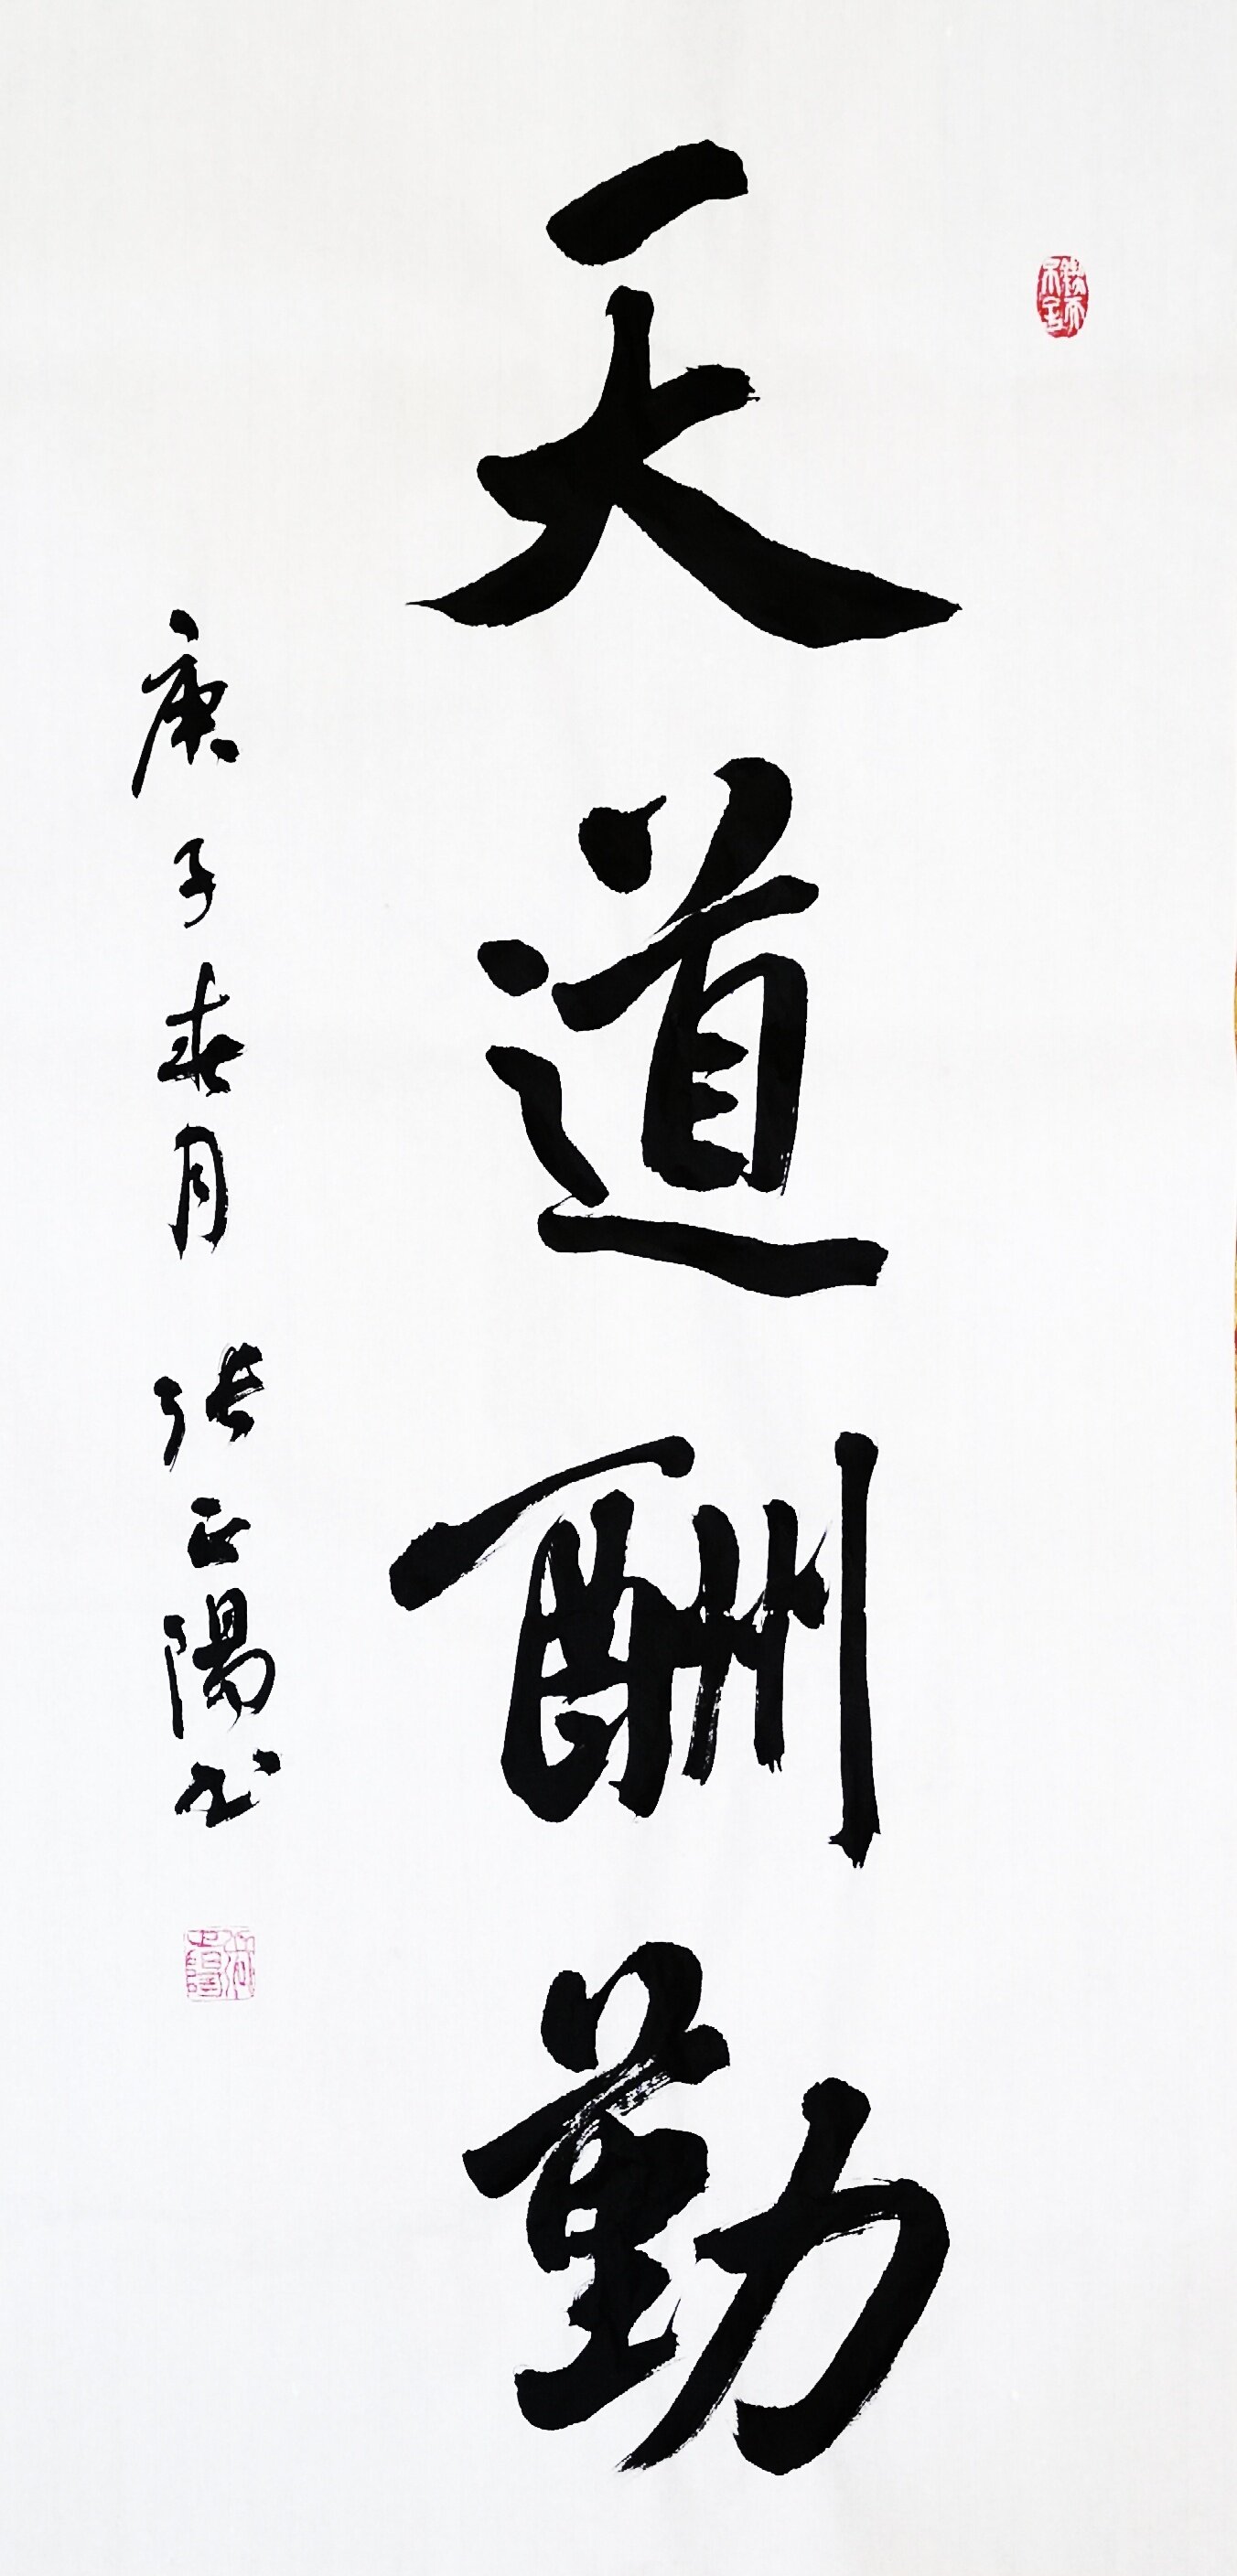 天道酬勤
庚子春月 張正陽书